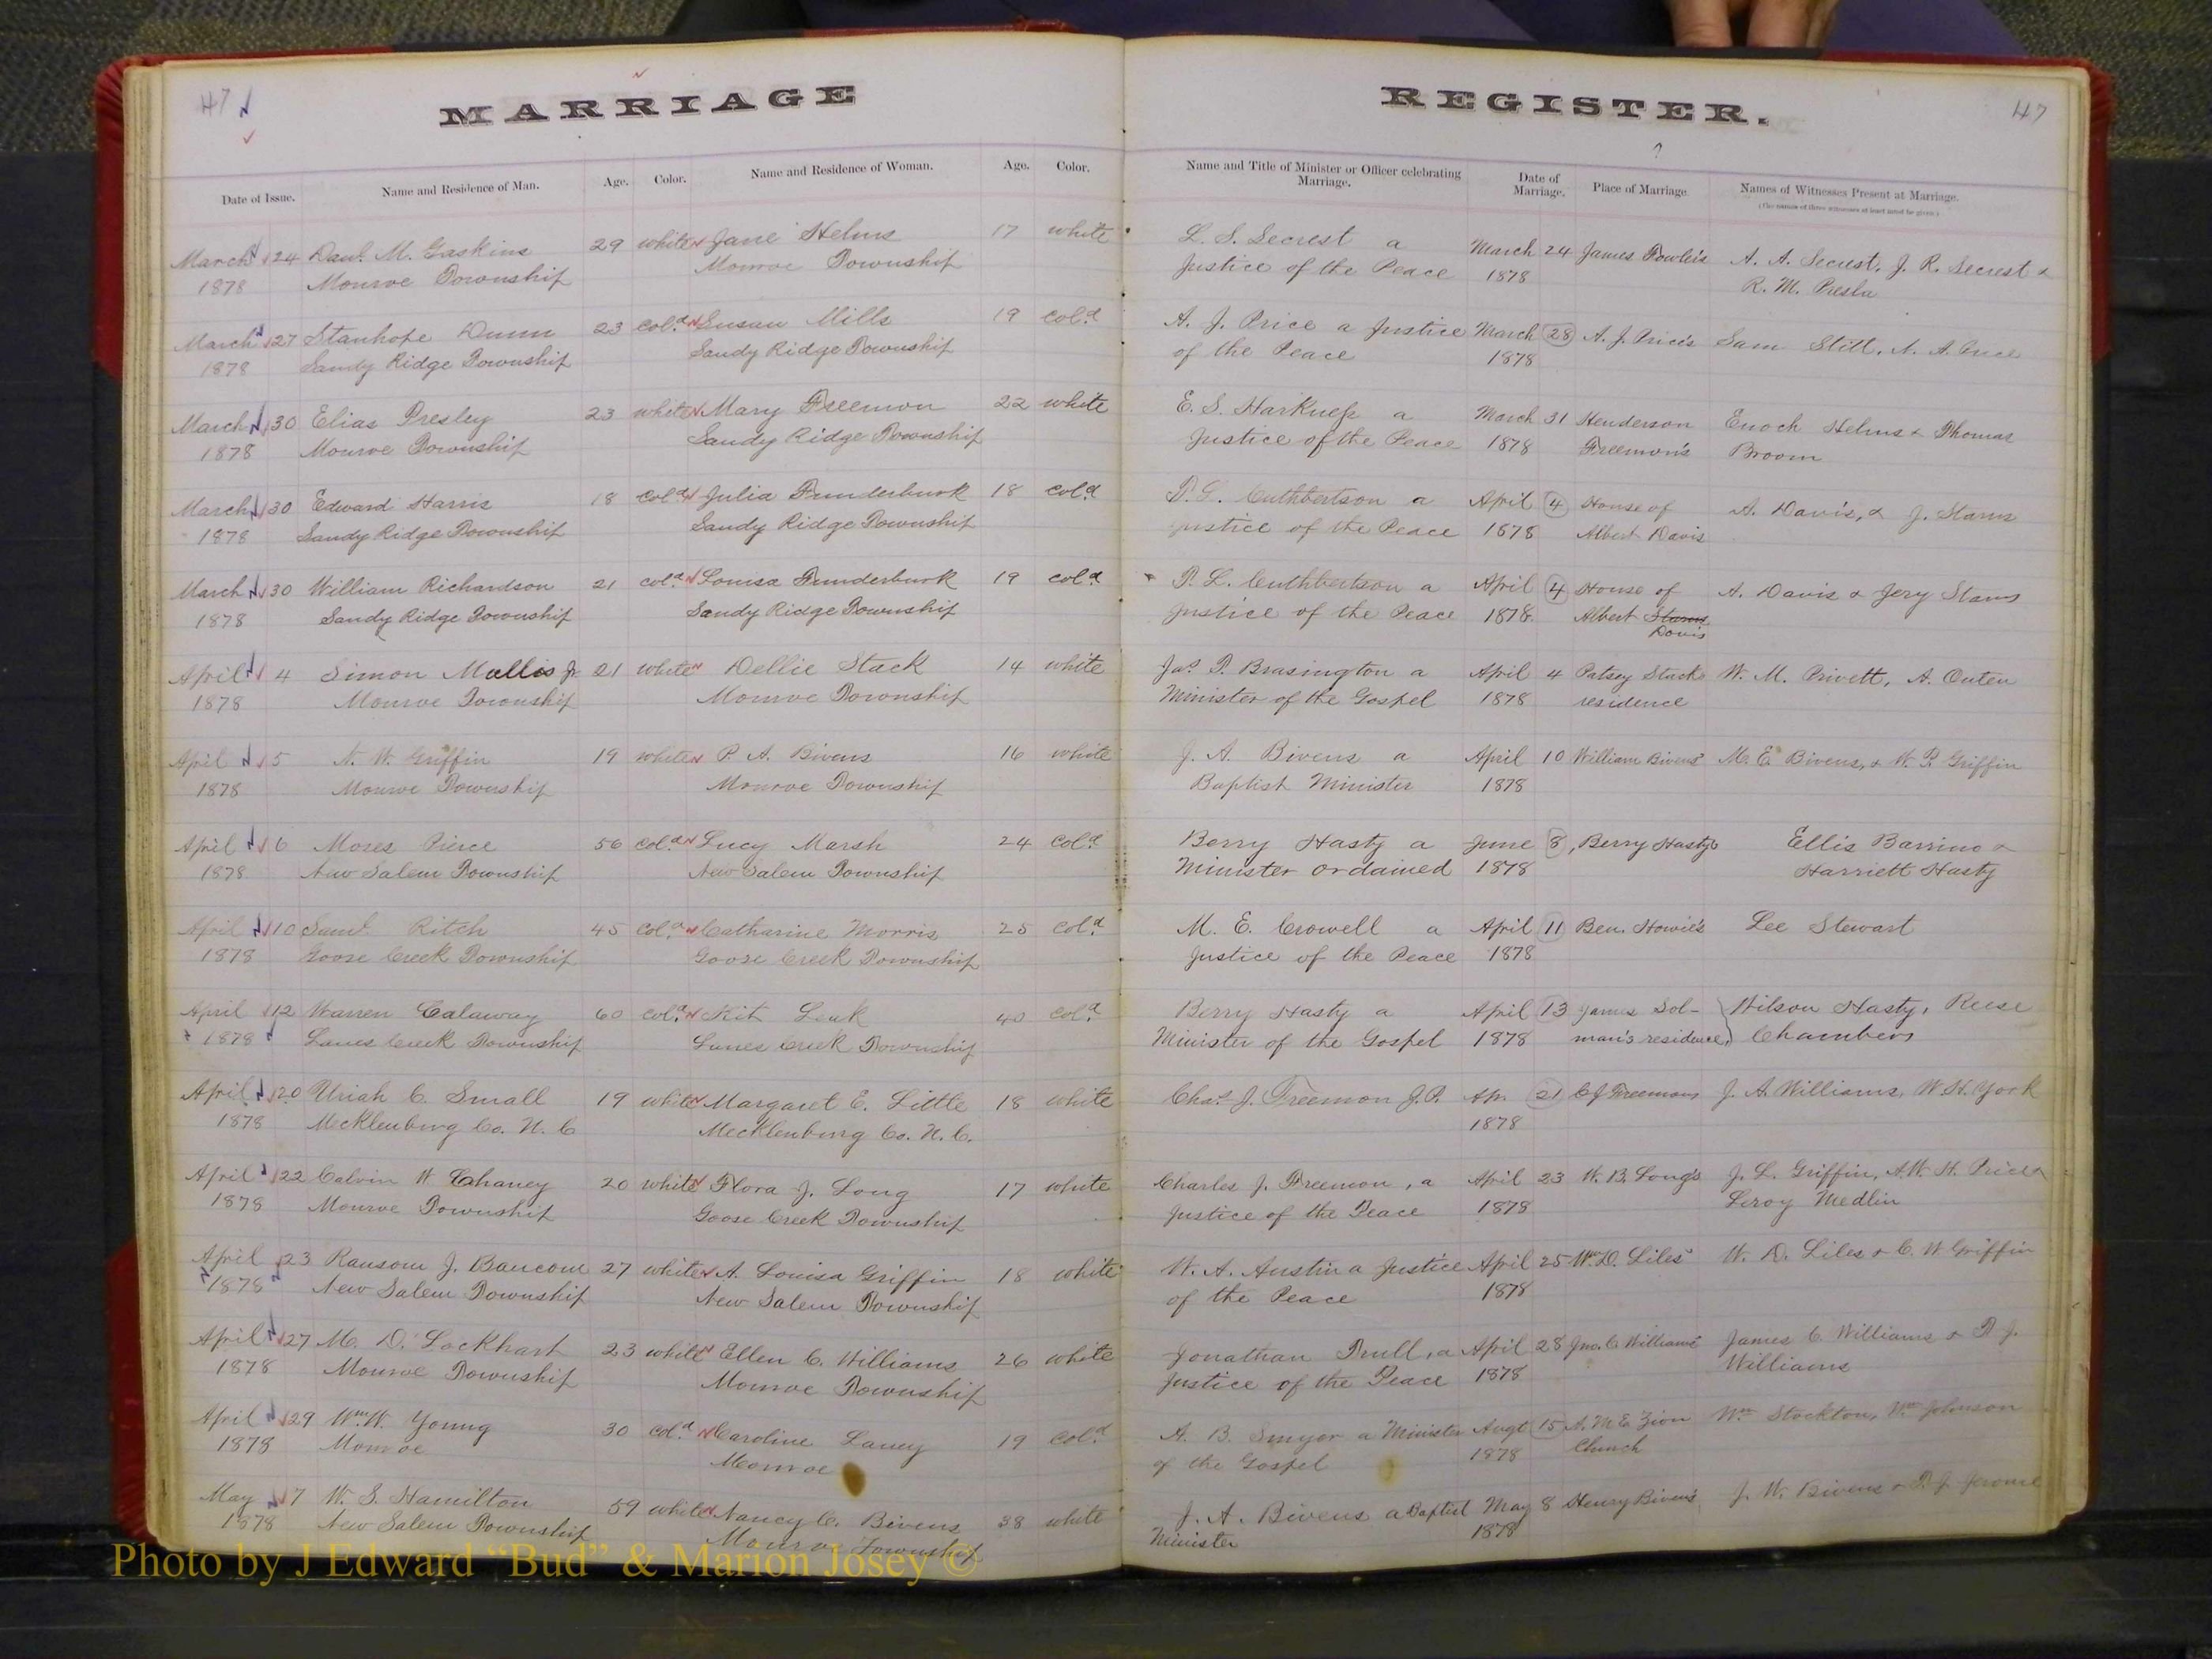 47
MARRIAGE
Date of Issue. Name and Residence of Man. Age. Color. Name and Residence of Woman. Age. Color.
March 24 Danl. M. Gaskins 29 white Jane Helms 17 white
1878 Monroe Township Monroe Township
March 27 Stanhope Dunn 23 cold Susan Mills 19 cold
1878 Sandy Ridge Township Sandy Ridge Township
March 30 Elias Presley 23 white Mary Freemon 22 white
1878 Monroe Township Sandy Ridge Township
March 30 Edward Harris 18 cold Julia Funderburk 18 cold
1878 Sandy Ridge Township Sandy Ridge Township
March 30 William Richardson 21 cold Louisa Funderburk 19 cold
1878 Sandy Ridge Township Sandy Ridge Township
April 4 Simon Mullis Jr. 21 white Dellie Stack 14 white
1878 Monroe Township Monroe Township
April 5 N. W. Griffin 19 white P. A. Bivens 16 white
1878 Monroe Township Monroe Township
April 6 Moses Pierce 56 cold Lucy Marsh 24 cold
1878 New Salem Township New Salem Township
April 10 Saml. Ritch 45 cold Catharine Morris 25 cold
1878 Goose Creek Township Goose Creek Township
April 12 Warren Calaway 60 cold Kit Leak 40 cold
1878 Lanes Creek Township Lanes Creek Township
April 20 Uriah C. Small 19 white Margaret E. Little 18 white
1878 Mecklenburg Co. N. C Mecklenburg Co. N. C.
April 22 Calvin W Chaney 20 white Flora J. Long 17 white
1878 Monroe Township Goose Creek Township
April 23 Ransom J. Baucom 27 white A. Louisa Griffin 18 white
1878 New Salem Township New Salem Township
April 27 M. D. Lockhart 23 white Ellen C. Williams 26 white
1878 Monroe Township Monroe Township
April 29 Wm. W. Young 30 cold Caroline Laney 19 cold
1878 Monroe Monroe
May 7 W. S. Hamilton 59 white Nancy C. Bivens 38 white
1878 New Salem Township Monroe Township
REGISTER.
47
?
Name and Title of Minister or Officer celebrating Marriage. Date of Marriage. Place of Marriage. Names of Witnesses Present at Marriage.
(The names of three witnesses at least must be given)
L. S. Secrest a March 24 James Fowler's A. A. Secrest, J. R. Secrest &
Justice of the Peace 1878 R. M. Presla
A. J. Price a Justice March 28 A. J. Price's Sam Stitt, N. A.
of the Peace 1878
E. S. a March 31 Henderson Enoch Helms & Thomas
Justice of the Peace 1878 Freemon's Broom
Cuthbertson a April 4 House of A. Davis, & J. Starns
Justice of the Peace 1878 Albert Davis
P. L. Cuthbertson a April 4 House of A. Davis & Jery Starns
Justice of the Peace 1878 Albert Starns
Davis
Jas. P. Brasington a April 4 Patsey Stack W. M. Privett, A. Outen
Minister of the Gospel 1878 residence
J. A. Bivens a April 10 William Bivens' M. E. Bivens, & W. P. Griffin
Baptist Minister 1878
Berry Hasty a June 8, Berry Hastys Ellis Barrino &
Minister ordained 1878 Harriett Hasty
M. E. Crowell a April 11 Ben. Howie's Lee Stewart
Justice of the Peace 1878
Berry Hasty a April 13 James Sol- Wilson Hasty, Reese
Minister of the Gospel 1878 man's residence, Chambers
Chas. J. Freemon J.P. Apr. 21 C J Freemons J. A. Williams, W. H. York
1878
Charles J. Freemon, a April 23 W. B. Long's J. L. Griffin, A. W. H. Price &
Justice of the Peace 1878 Leroy Medlin
W. A. Austin a Justice April 25 Wm. D. Liles' W. D. Liles & C. W Griffin
of the Peace 1878
Jonathan Trull, a April 28 Jno. C Williams' James C. Williams & P. J.
Justice of the Peace 1878 Williams
A. B. Smyer a Minister Augt 15 A. M. E. Zion Wm Stockton, Wm Johnson
of the Gospel 1878 Church
J. A. Bivens a Baptist May 8 Henry Bivens J. W. Bivens & P. J. Jerome
Minister 1878
Photo by J Edward “Bud” & Marion Josey ©